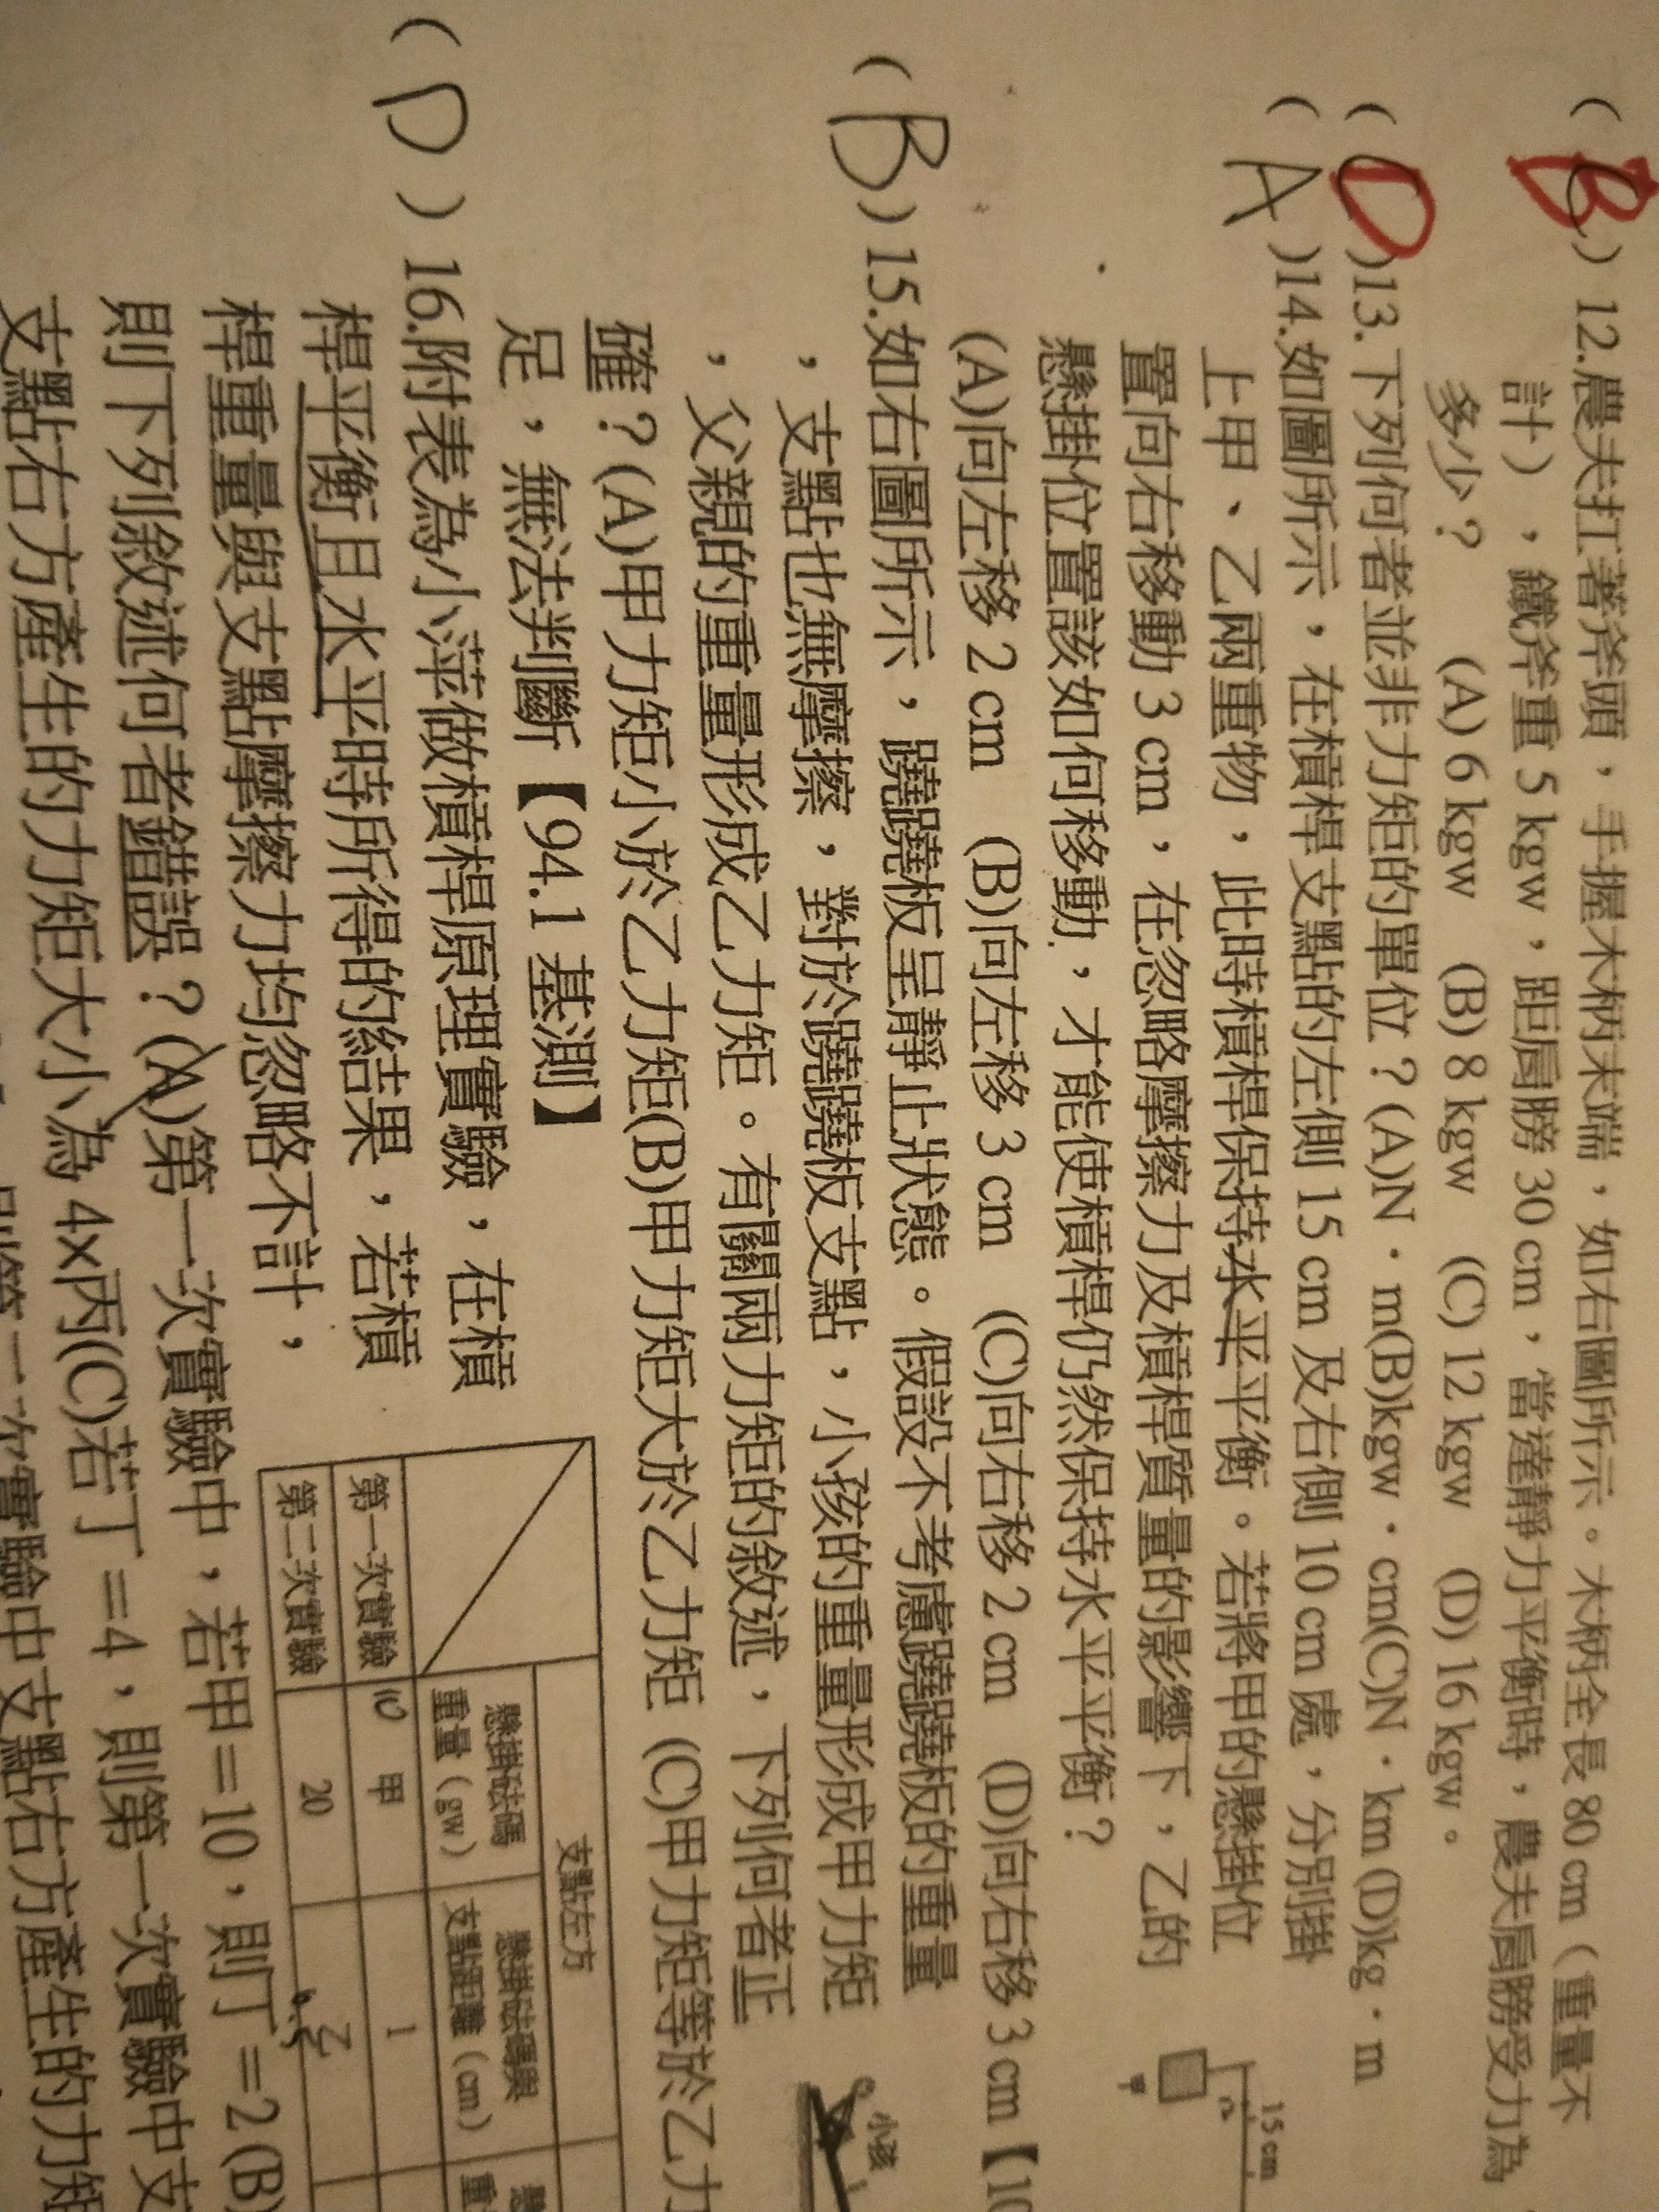 ( B ) 12.農夫扛著斧頭，手握木柄末端，如右圖所示。木柄全長 80 cm（重量不
計），鐵斧重 5 kgw，距肩膀 30 cm，當達靜力平衡時，農夫肩膀受力為
多少？ (A) 6 kgw (B) 8 kgw (C) 12 kgw (D) 16 kgw。
( D )13.下列何者並非力矩的單位？(A)N．m(B)kgw．cm(C)N．km (D)kg．m
( A )14.如圖所示，在槓桿支點的左側 15 cm 及右側 10 cm 處，分別掛
上甲、乙兩重物，此時槓桿保持水平平衡。若將甲的懸掛位
置向右移動 3 cm，在忽略摩擦力及槓桿質量的影響下，乙的
懸掛位置該如何移動，才能使槓桿仍然保持水平平衡？
(A)向左移 2 cm (B)向左移 3 cm (C)向右移 2 cm (D)向右移 3 cm【10
15 cm
甲
( B ) 15.如右圖所示，蹺蹺板呈靜止狀態。假設不考慮蹺蹺板的重量
，支點也無摩擦，對於蹺蹺板支點，小孩的重量形成甲力矩
，父親的重量形成乙力矩。有關兩力矩的敘述，下列何者正
確？(A)甲力矩小於乙力矩(B)甲力矩大於乙力矩 (C)甲力矩等於乙力
足，無法判斷【94.1 基測】
小孩
( D ) 16.附表為小萍做槓桿原理實驗，在槓
桿平衡且水平時所得的結果，若槓
桿重量與支點摩擦力均忽略不計，
則下列敘述何者錯誤？(A)第一次實驗中，若甲＝10，則丁＝2 (B)
支點右方產生的力矩大小為 4x丙(C)若丁＝4，則第一次實驗中支
支點左方
懸掛砝碼 懸掛砝碼與 懸
重量（gw） 支點距離（cm） 重
第一次實驗 10 甲 1
第二次實驗 20 乙
次實驗中支點右方產生的力矩